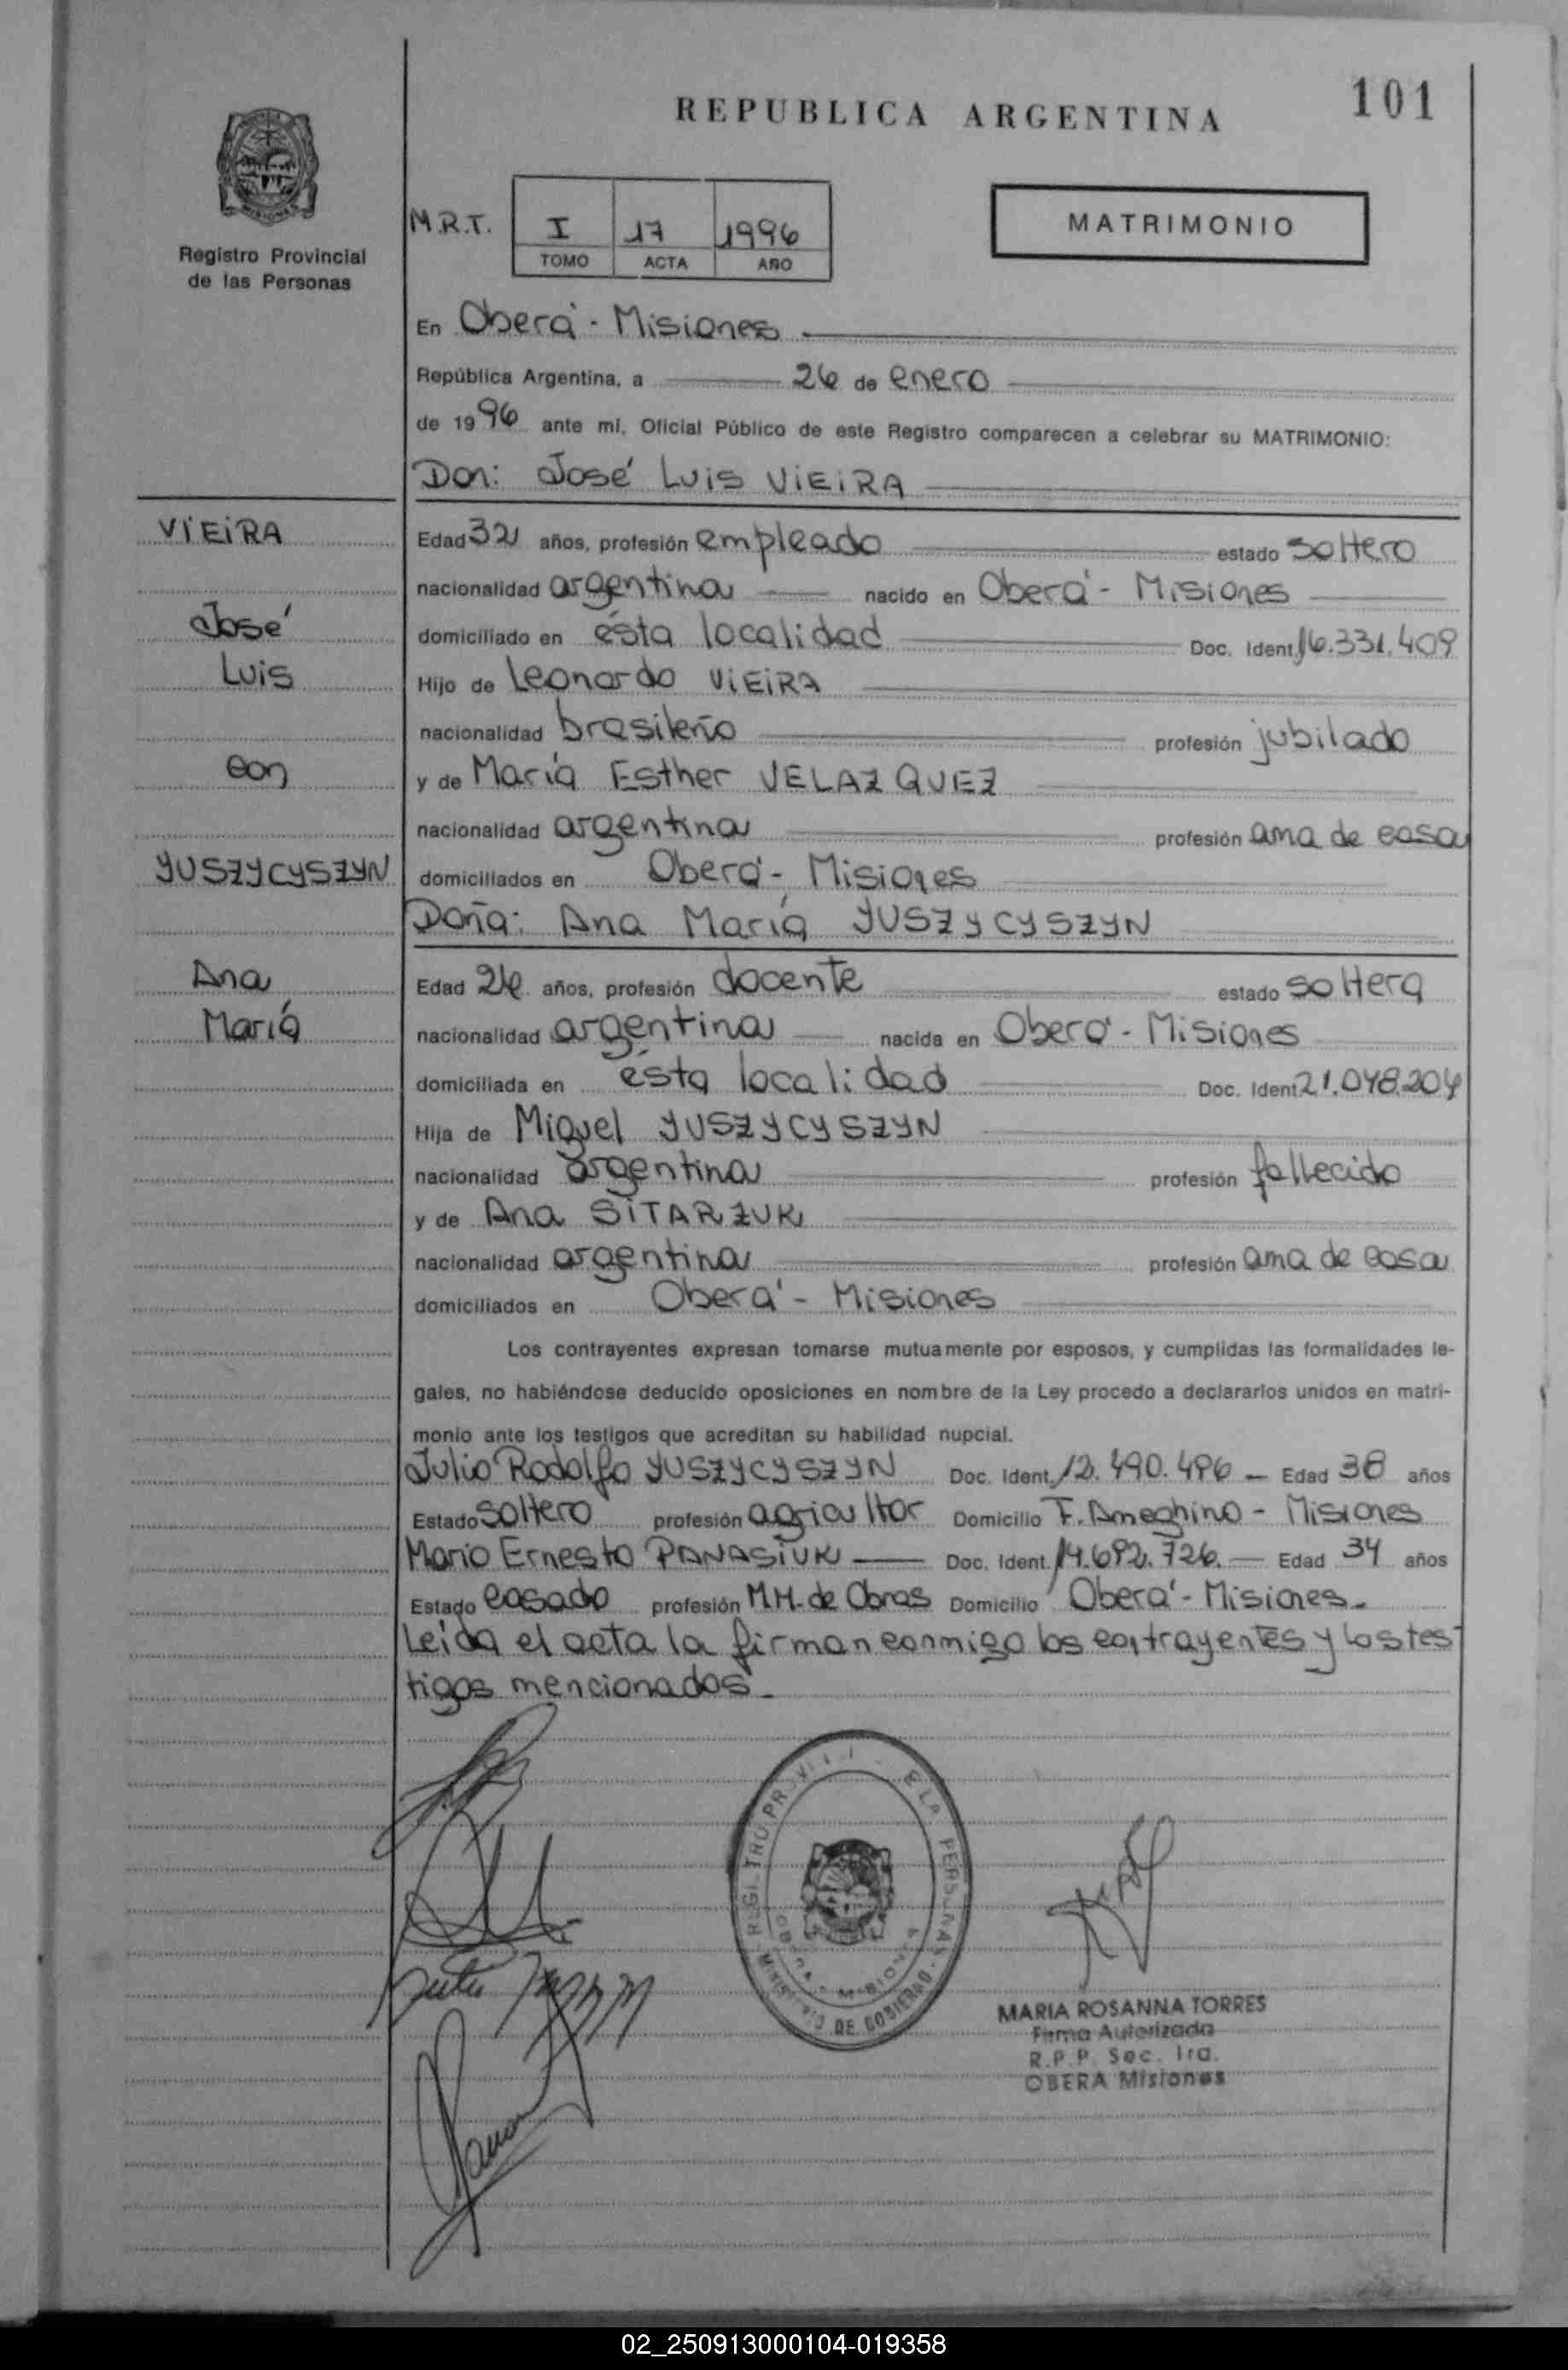 REPUBLICA ARGENTINA
101
Registro Provincial
de las Personas
M.R.T.
I 17 1996
TOMO ACTA AÑO
MATRIMONIO
En Oberá - Misiones
República Argentina, a 26 de enero
de 1996 ante mí, Oficial Público de este Registro comparecen a celebrar su MATRIMONIO:
Don: José Luis VIEIRA
VIEIRA
José
Luis
con
YUSZYCYSZYN
Ana
María
Edad 32 años, profesión empleado estado soltero
nacionalidad argentina nacido en Oberá - Misiones
domiciliado en ésta localidad Doc. Ident. 16.331.409
Hijo de Leonardo VIEIRA
nacionalidad brasileño profesión jubilado
y de María Esther VELAZQUEZ
nacionalidad argentina profesión ama de casa
domiciliados en Oberá - Misiones
Doña: Ana María YUSZYCYSZYN
Edad 26 años, profesión docente estado soltera
nacionalidad argentina nacida en Oberá - Misiones
domiciliada en ésta localidad Doc. Ident. 21.048.204
Hija de Miguel YUSZYCYSZYN
nacionalidad argentina profesión fallecido
y de Ana SITARZUK
nacionalidad argentina profesión ama de casa
domiciliados en Oberá - Misiones
Los contrayentes expresan tomarse mutuamente por esposos, y cumplidas las formalidades le-
gales, no habiéndose deducido oposiciones en nombre de la Ley procedo a declararlos unidos en matri-
monio ante los testigos que acreditan su habilidad nupcial.
Julio Rodolfo YUSZYCYSZYN Doc. Ident. 12.490.496 - Edad 38 años
Estado soltero profesión agricultor Domicilio F. Ameghino - Misiones
Mario Ernesto PANASIUK Doc. Ident. 14.692.726. Edad 34 años
Estado casado profesión M.M. de Obras Domicilio Oberá - Misiones.
Leida el acta la firman conmigo los contrayentes y los tes-
tigos mencionados.-
MARIA ROSANNA TORRES
Firma Autorizada
R.P.P. Sec. 1ra.
OBERA Misiones
02_250913000104-019358